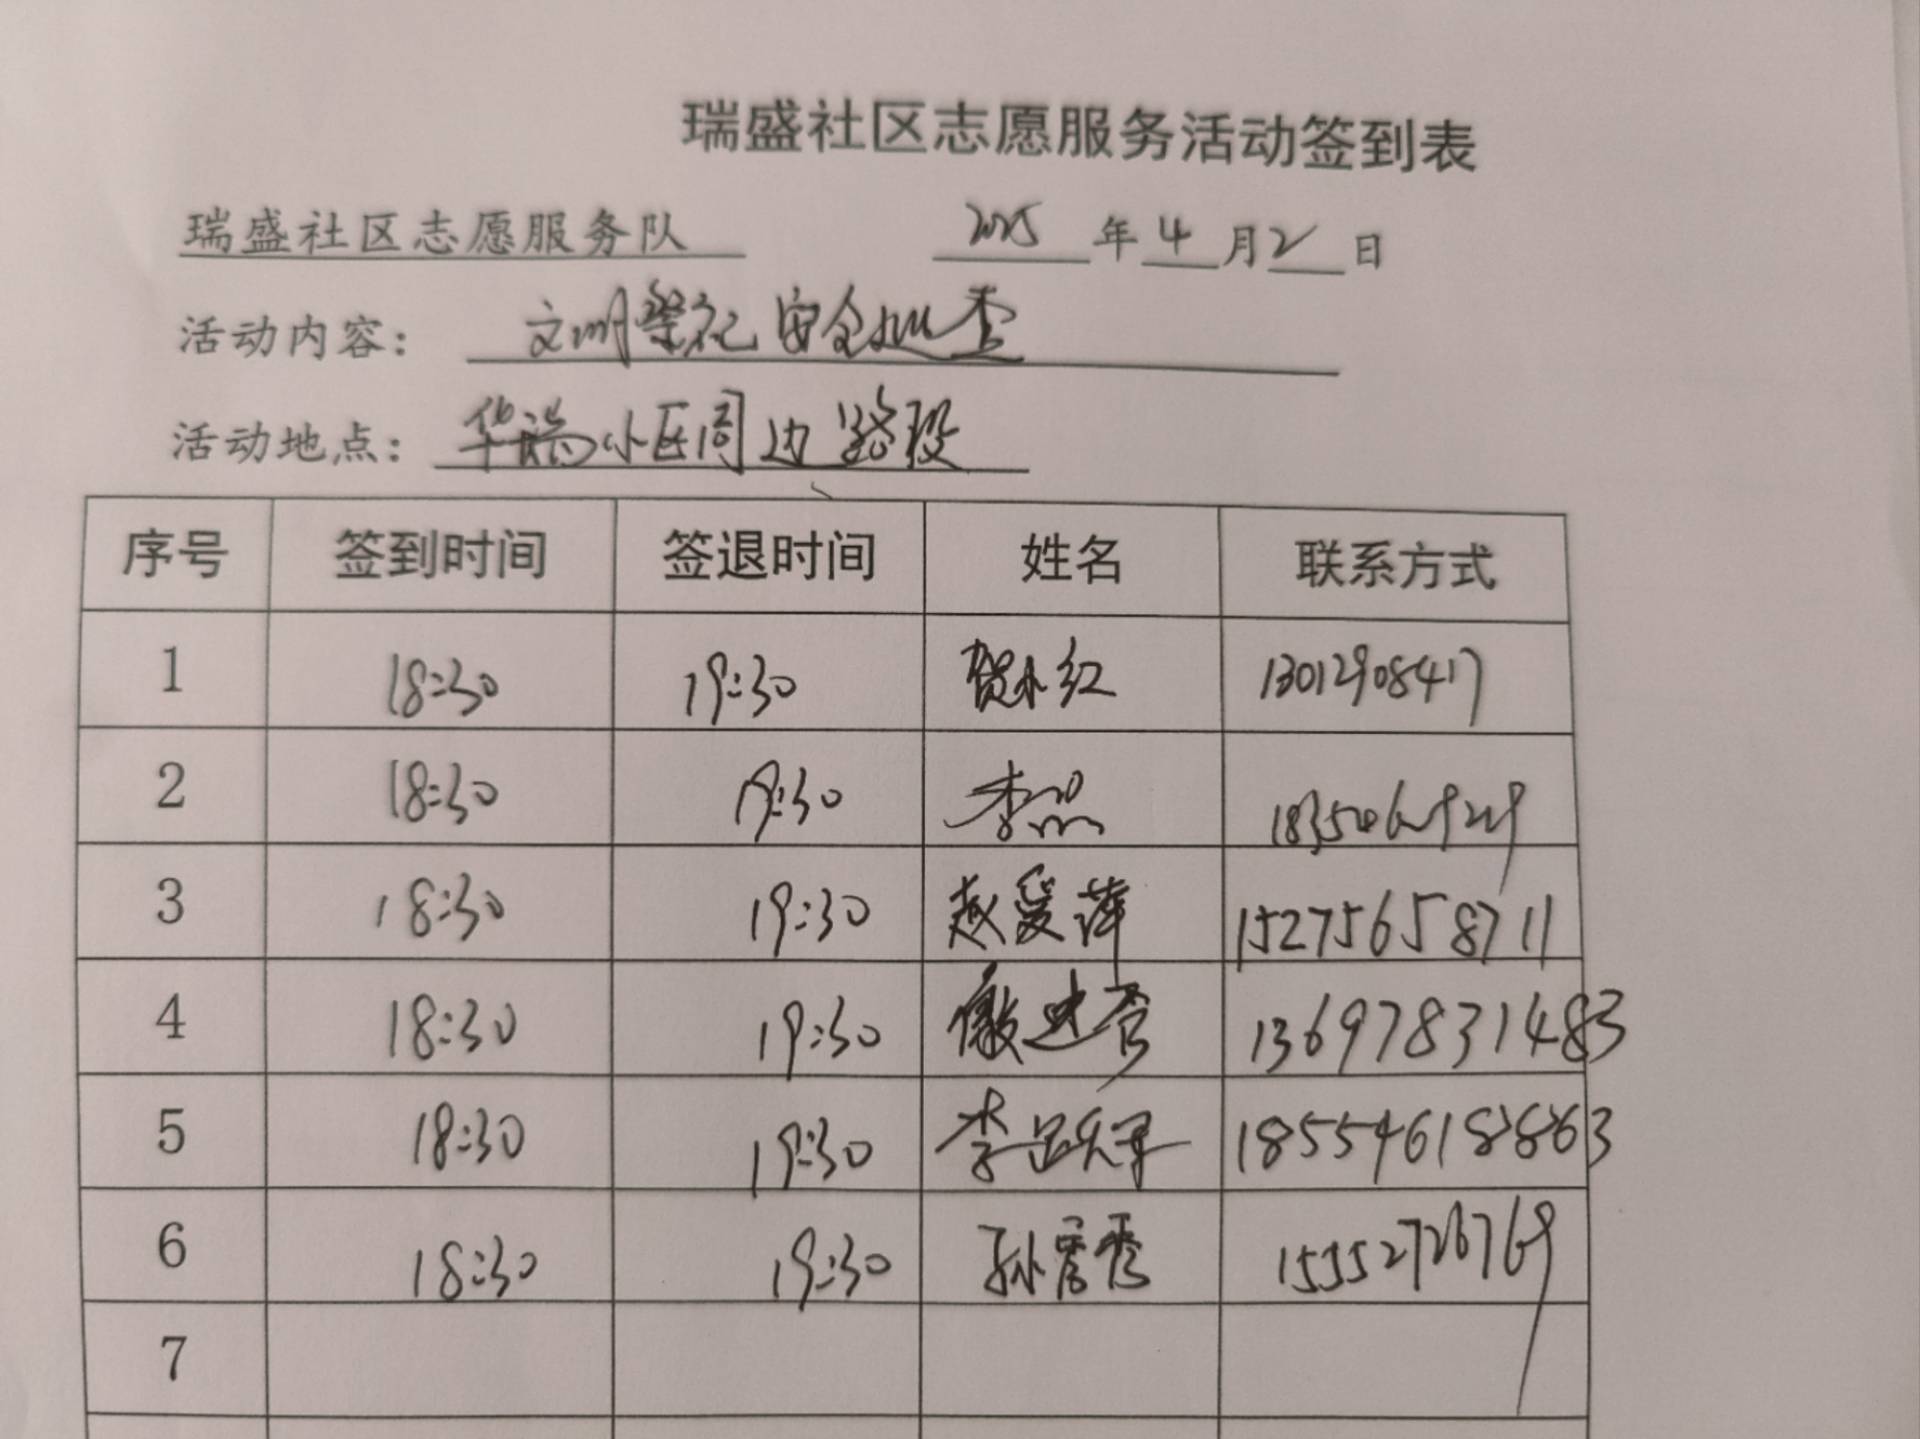 瑞盛社区志愿服务活动签到表
瑞盛社区志愿服务队 2025年4月2日
活动内容：文明祭祀安全巡查
活动地点：华瑞小区周边路段
序号 签到时间 签退时间 姓名 联系方式
1 18:30 19:30 贺小红 13012908417
2 18:30 19:30 李
3 18:30 19:30 赵爱萍 15275658711
4 18:30 19:30 13697831483
5 18:30 19:30 李 18554618863
6 18:30 19:30 孙秀 15552726769
7